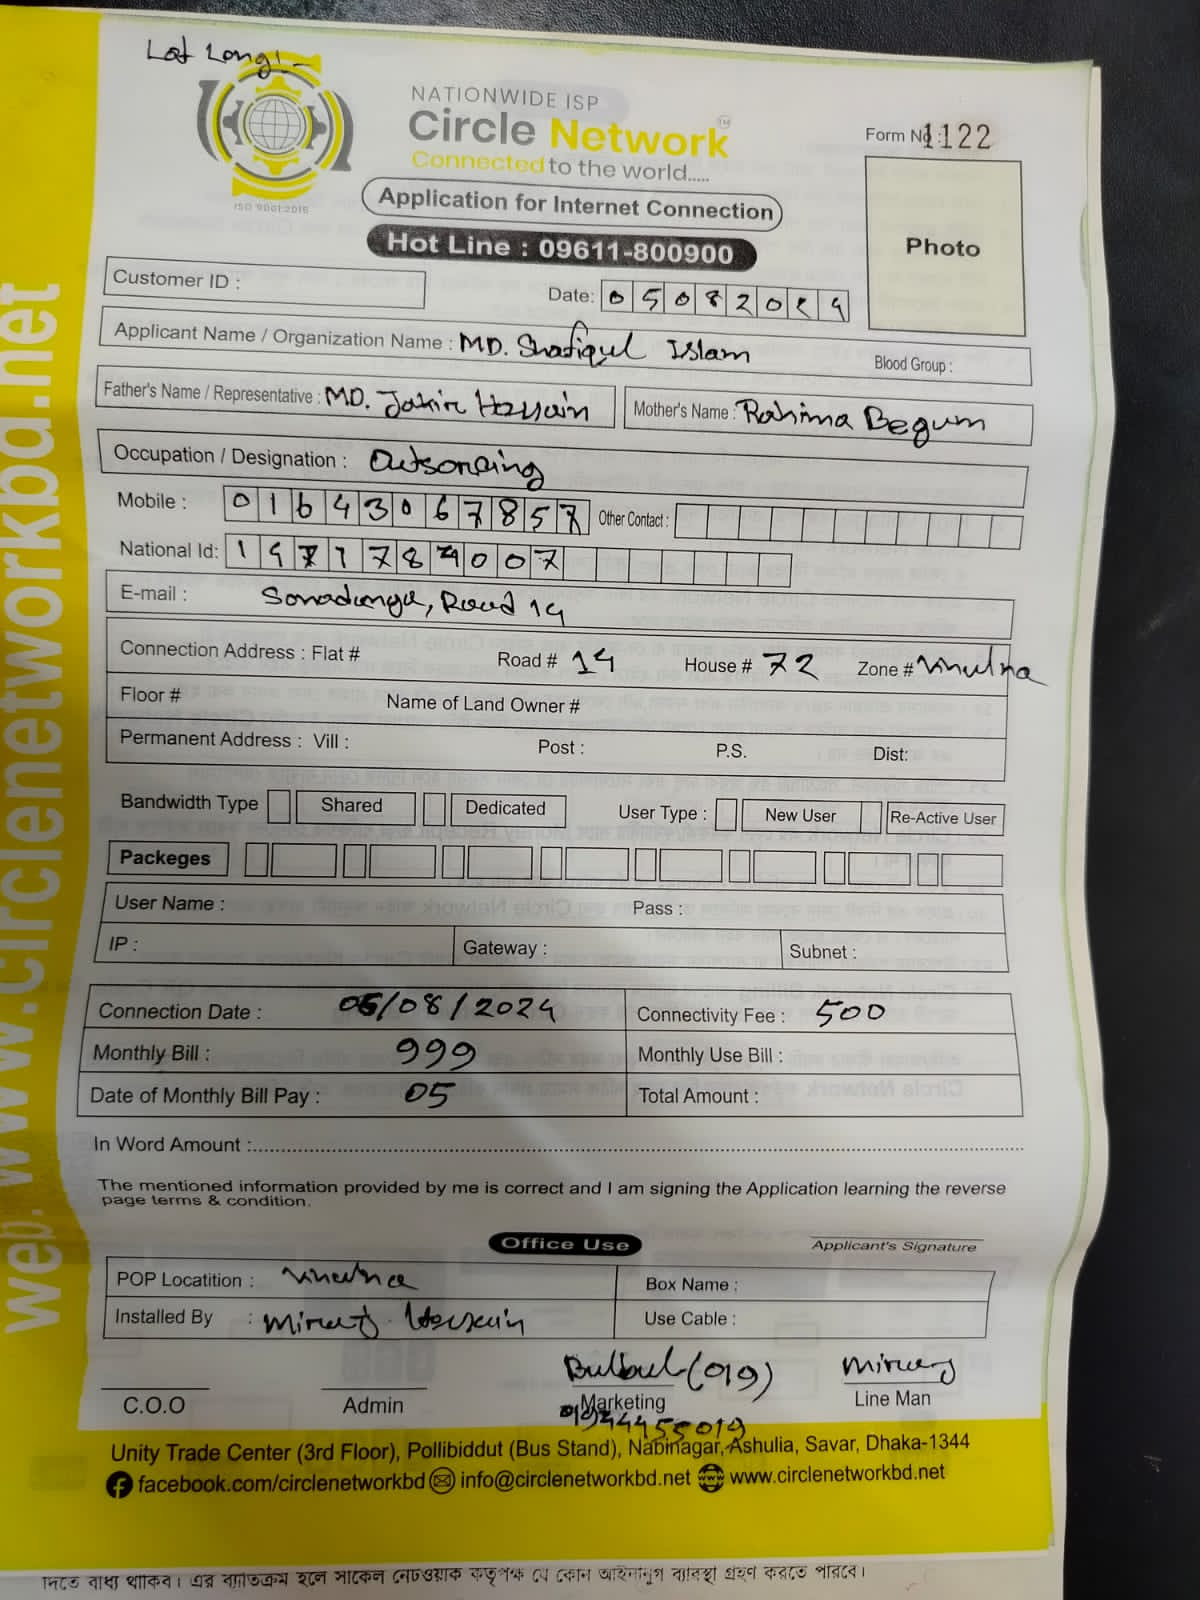 Lat Long:-
NATIONWIDE ISP
Circle Network™
Connected to the world.....
ISO 9001:2015
Application for Internet Connection
Hot Line : 09611-800900
Form No : 1122
Photo
Customer ID :
Date: 05082024
Applicant Name / Organization Name : MD. Shafiqul Islam
Blood Group :
Father's Name / Representative : MD. Jakir Hossain
Mother's Name : Rahima Begum
Occupation / Designation : Outsorcing
Mobile : 01643067857
Other Contact :
National Id:
E-mail : Sonadanga, Road 14
Connection Address : Flat # Road # 14 House # 72 Zone #
Floor # Name of Land Owner #
Permanent Address : Vill : Post : P.S. Dist:
Bandwidth Type Shared Dedicated User Type : New User Re-Active User
Packeges
User Name : Pass :
IP : Gateway : Subnet :
Connection Date : 05/08/2024 Connectivity Fee : 500
Monthly Bill : 999 Monthly Use Bill :
Date of Monthly Bill Pay : 05 Total Amount :
In Word Amount :
The mentioned information provided by me is correct and I am signing the Application learning the reverse
page terms & condition.
Office Use
Applicant's Signature
POP Locatition : Box Name :
Installed By : Miraj Hossain Use Cable :
Bulbul (019) Miraj
C.O.O Admin Marketing Line Man
Unity Trade Center (3rd Floor), Pollibiddut (Bus Stand), Nabinagar, Ashulia, Savar, Dhaka-1344
facebook.com/circlenetworkbd info@circlenetworkbd.net www.circlenetworkbd.net
web. www.circlenetworkbd.net
দিতে বাধ্য থাকিব। এর ব্যতিক্রম হলে সার্কেল নেটওয়ার্ক কতৃপক্ষ যে কোন আইনানুগ ব্যাবস্থা গ্রহণ করতে পারবে।